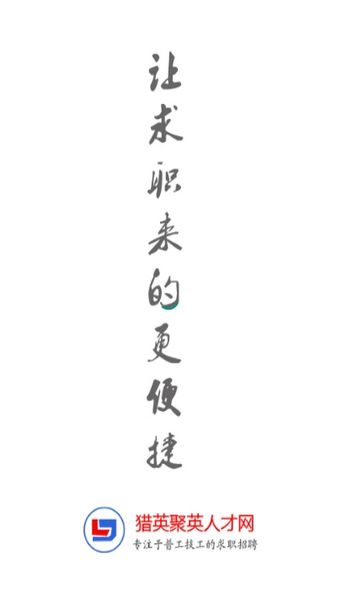 让求职来的更便捷
猎英聚英人才网
专注于普工技工的求职招聘